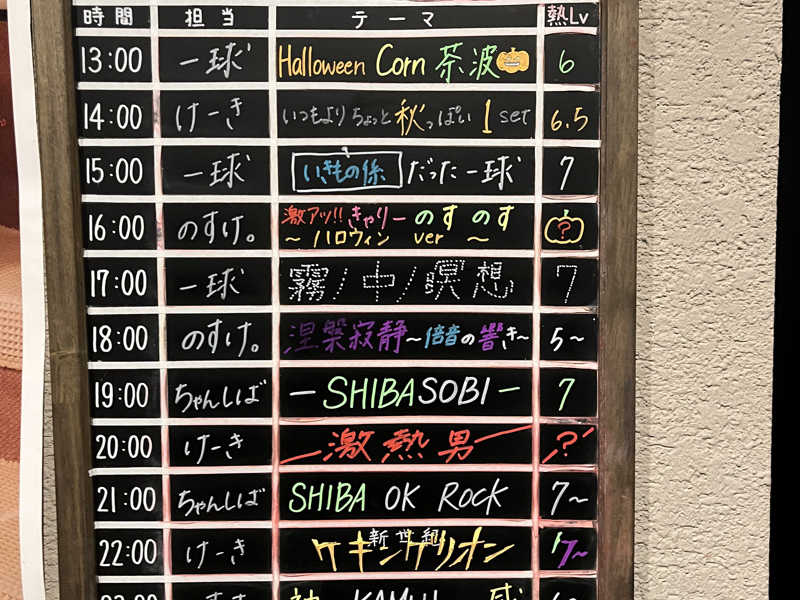 時間 担当 テーマ 熱Lv
13:00 一球 Halloween Corn 茶波 6
14:00 けーき いつもより ちょっと 秋っぽい 1 set 6.5
15:00 一球 いきもの係 だった一球 7
16:00 のすけ。 激アツ!! きゃりー のす のす ?
～ ハロウィン ver ～
17:00 一球 霧ノ中ノ瞑想 7
18:00 のすけ。 涅槃寂静～倍音の響き～ 5～
19:00 ちゃんしば －SHIBASOBI－ 7
20:00 けーき 激熱男 ?
21:00 ちゃんしば SHIBA OK ROCK 7～
22:00 けーき 新世紀 ケキンゲリオン 7～